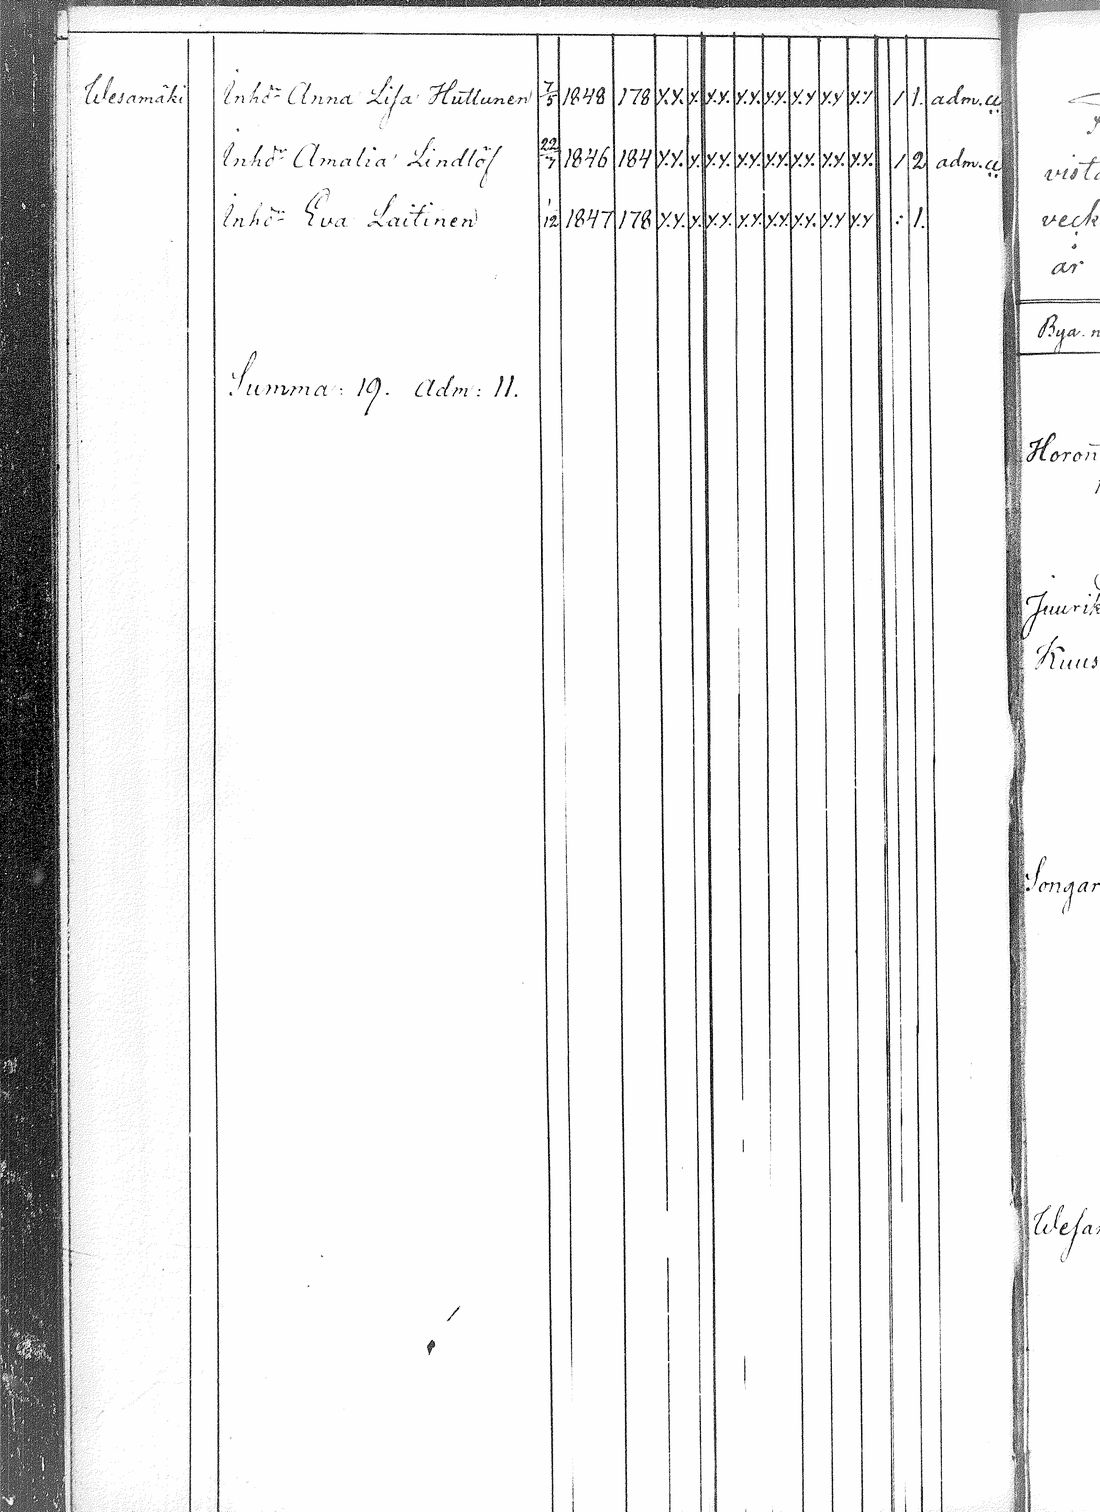 Wesamäki Inhör Anna Lisa Huttunen 7/5 1848 178 y.y. y. y.y. y.y. y.y. y.y y.y y.y / 1. adm.
Inhör Amalia Lindlöf 22/7 1846 184 y.y. y. y.y. y.y. y.y. y.y. y.y. y.y. / 2 adm.
Inhör Eva Laitinen 1/12 1847 178 y.y. y. y.y. y.y. y.y. y.y. y.y y.y : 1.
Summa: 19. Adm: 11.
vist
veck
år
Bya. n
Horon
Juurik
Kuus
Songar
Wesa